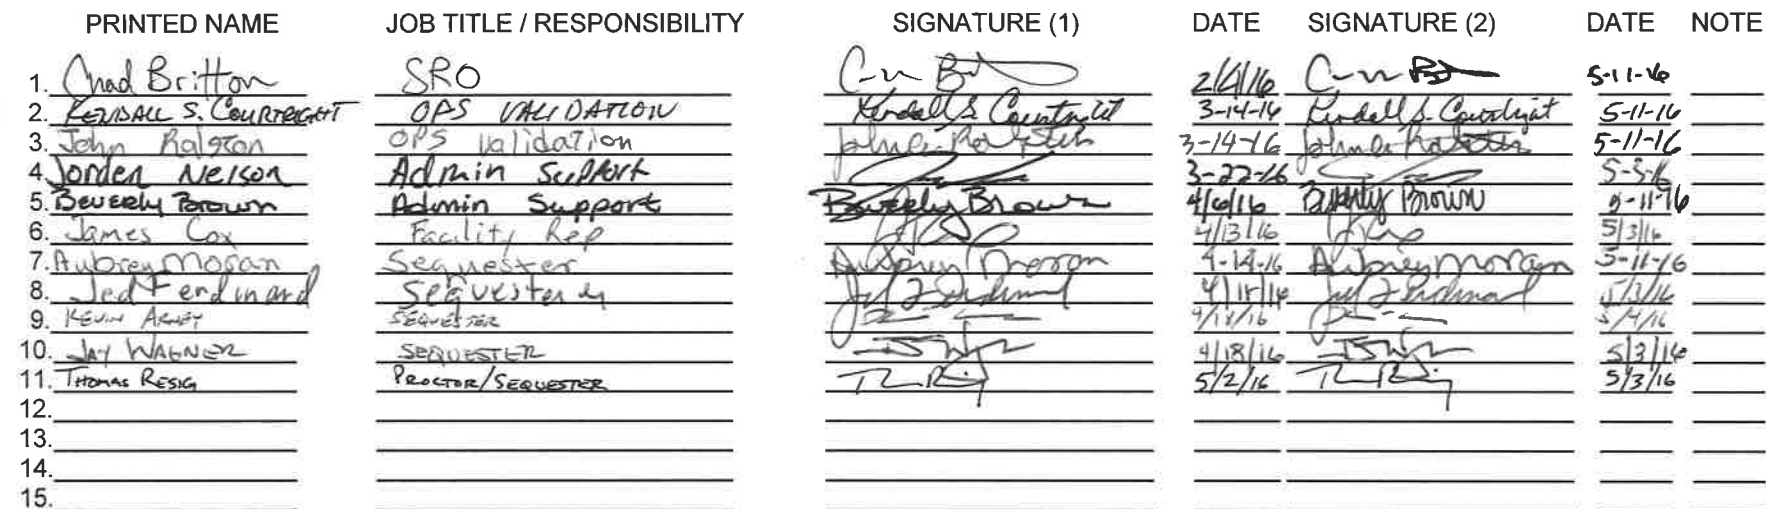 PRINTED NAME JOB TITLE / RESPONSIBILITY SIGNATURE (1) DATE SIGNATURE (2) DATE NOTE
1. Chad Britton SRO 2/4/16 5-11-16
2. KENDALL S. COURTRIGHT OPS VALIDATION Kendall S. Courtright 3-14-16 Kendall S. Courtright 5-11-16
3. John Ralston OPS Validation 3-14-16 5-11-16
4. Jorden Nelson Admin Support 3-22-16 5-3-16
5. Beverly Brown Admin Support Beverly Brown 4/6/16 Beverly Brown 5-11-16
6. James Cox Facility Rep 4/13/16 5/3/16
7. Aubrey Moran Sequester Aubrey Moran 4-14-16 Aubrey Moran 5-11-16
8. Jed Ferdinand 5/3/16
9. KEVIN ARNEY SEQUESTER 5/4/16
10. JAY WAGNER SEQUESTER 4/18/16 5/3/16
11. THOMAS RESIG PROCTOR/SEQUESTER 5/2/16 5/3/16
12.
13.
14.
15.